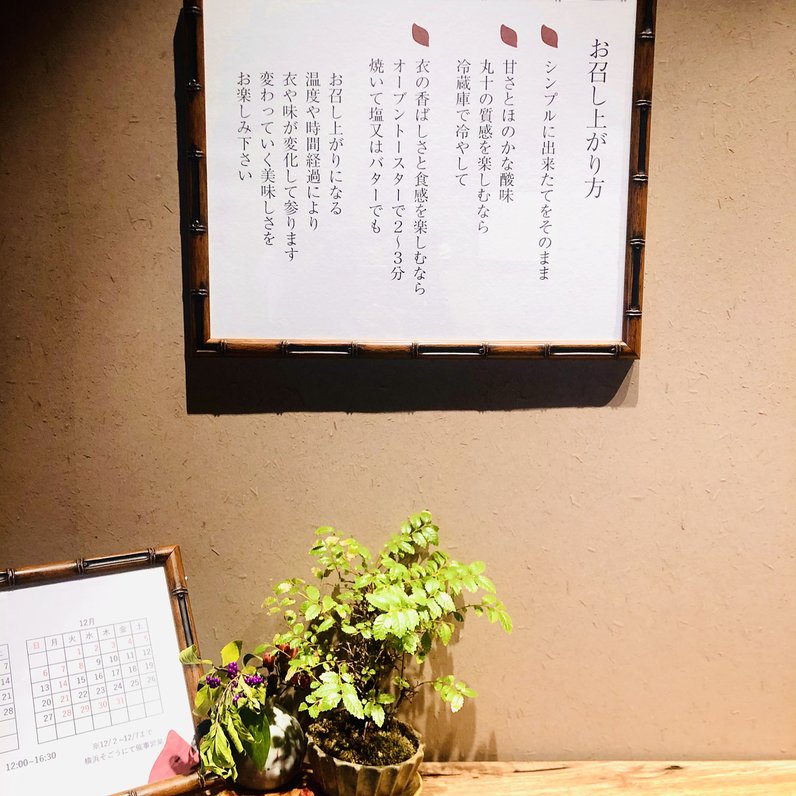 お召し上がり方
シンプルに出来たてをそのまま
甘さとほのかな酸味
丸十の質感を楽しむなら
冷蔵庫で冷やして
衣の香ばしさと食感を楽しむなら
オーブントースターで2〜3分
焼いて塩又はバターでも
お召し上がりになる
温度や時間経過により
衣や味が変化して参ります
変わっていく美味しさを
お楽しみ下さい
12月
日 月 火 水 木 金 土
1 2 3 4 5
6 7 8 9 10 11 12
13 14 15 16 17 18 19
20 21 22 23 24 25 26
27 28 29 30 31
7
14
21
28
12:00~16:30
※12/2~12/7まで
横浜そごうにて催事出店